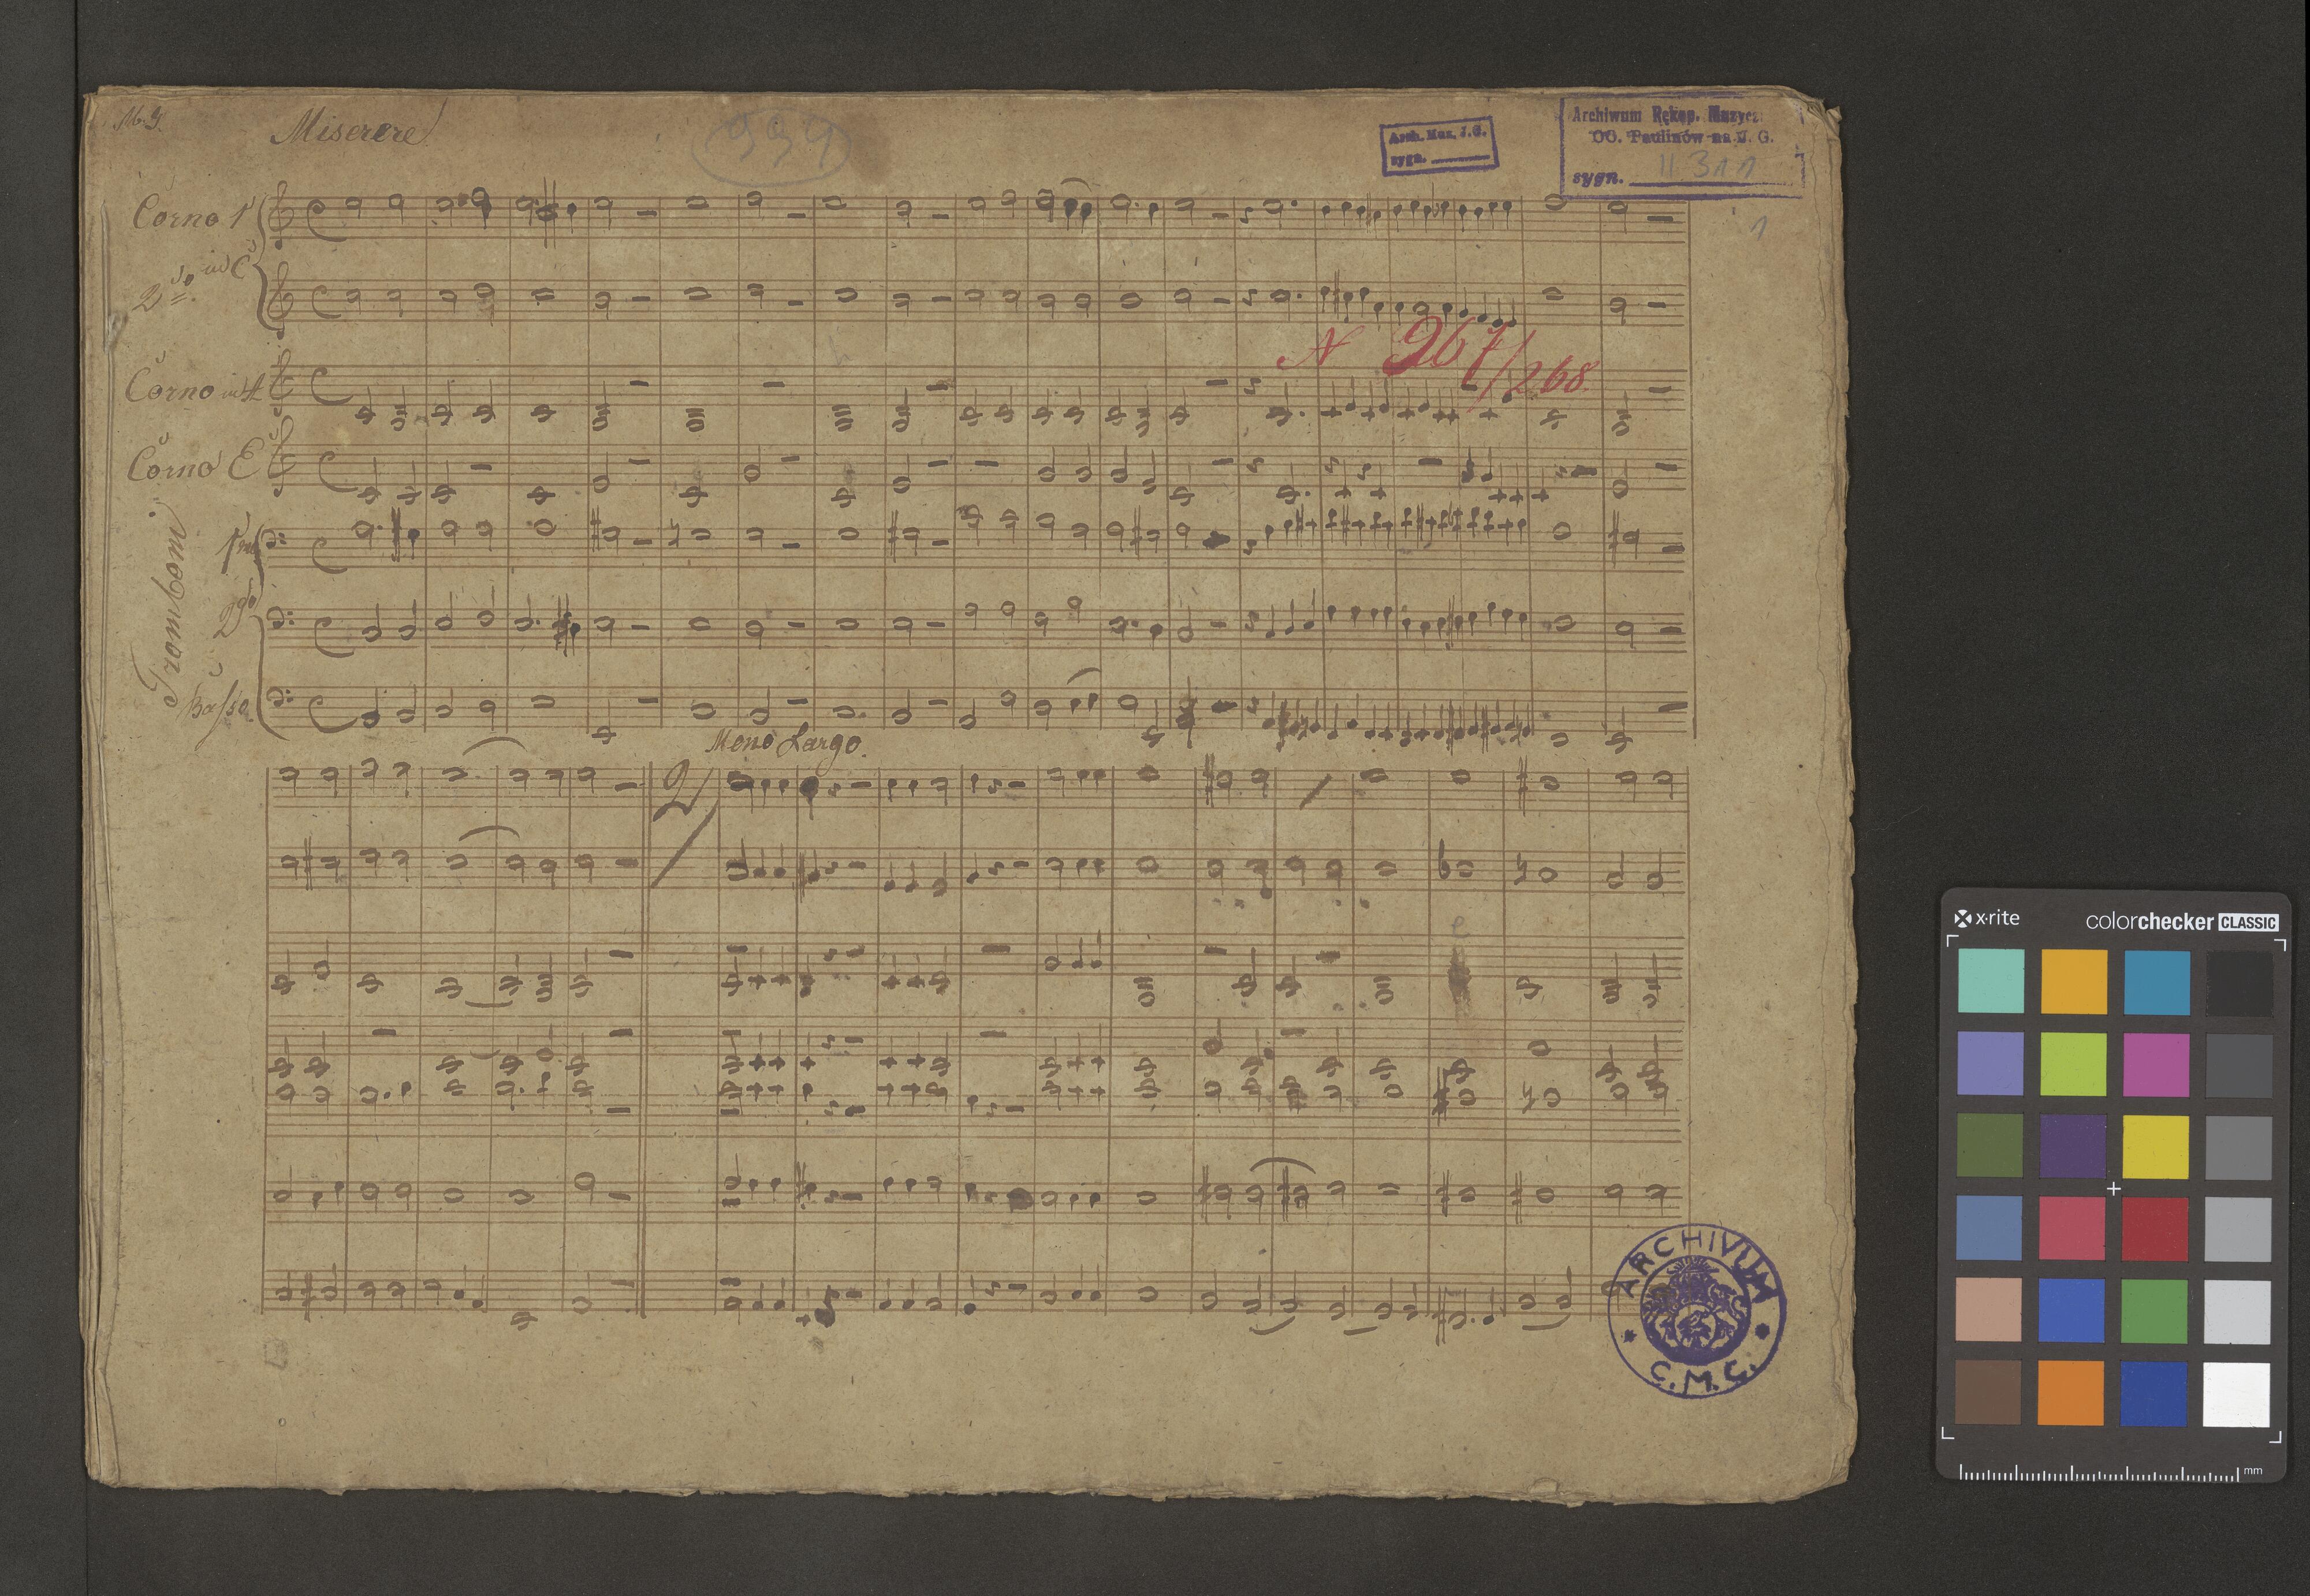 Miserere
939
Arch. Muz. J.G.
sygn.
Archiwum Rękop. Muzycz.
OO. Paulinów na J. G.
sygn. II 311
1
Corno 1º
2do in C
Corno in A
N 267/268
Corno E
Tromboni
1mo
2do
Basso
Meno Largo
2
e
ARCHIVUM
C.M.C.
x·rite
colorchecker CLASSIC
mm